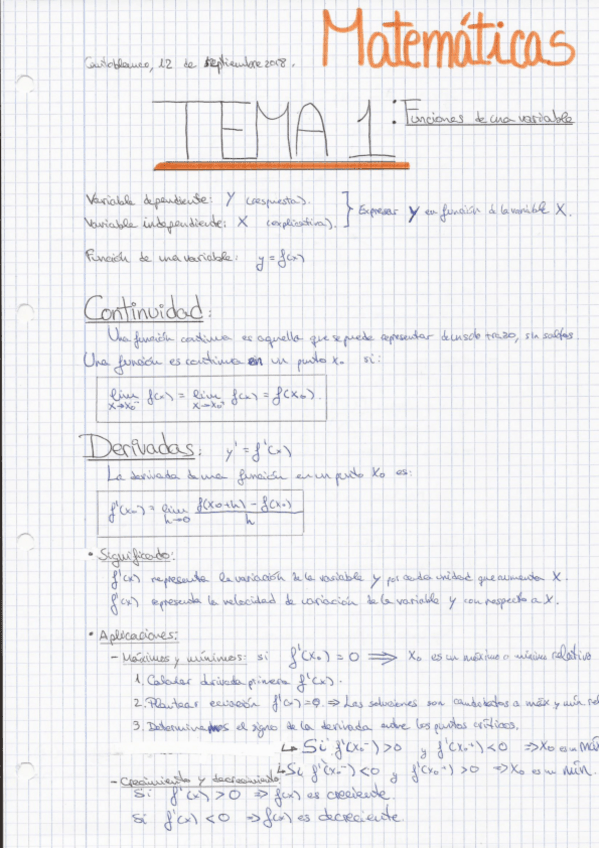 Matemáticas
Cantoblanco, 12 de septiembre 2018.
TEMA 1: Funciones de una variable
Variable dependiente: Y (respuesta).
Variable independiente: X (explicativa).
Expresar y en función de la variable X.
Función de una variable: y = f(x)
Continuidad:
Una función continua es aquella que se puede representar de un solo trazo, sin saltos.
Una función es continua en un punto x₀ si:
lim x→x₀⁻ f(x) = lim x→x₀⁺ f(x) = f(x₀).
Derivadas: y' = f'(x)
La derivada de una función en un punto x₀ es:
f'(x₀) = lim h→0 f(x₀+h) - f(x₀) / h
• Significado:
f'(x) representa la variación de la variable y por cada unidad que aumenta X.
f'(x) representa la velocidad de variación de la variable y con respecto a X.
• Aplicaciones:
- Máximos y mínimos: si f'(x₀) = 0 ⟹ x₀ es un máximo o mínimo relativo
1. Calcular derivada primera f'(x).
2. Plantear ecuación f'(x)=0. ⟹ Las soluciones son candidatas a máx y mín. rel
3. Determinamos el signo de la derivada sobre los puntos críticos.
↳ Si f'(x₀⁻) > 0 y f'(x₀⁺) < 0 ⟹ x₀ es un máx
↳ Si f'(x₀⁻) < 0 y f'(x₀⁺) > 0 ⟹ x₀ es un mín.
- Crecimiento y decrecimiento:
Si f'(x) > 0 ⟹ f(x) es creciente.
Si f'(x) < 0 ⟹ f(x) es decreciente.